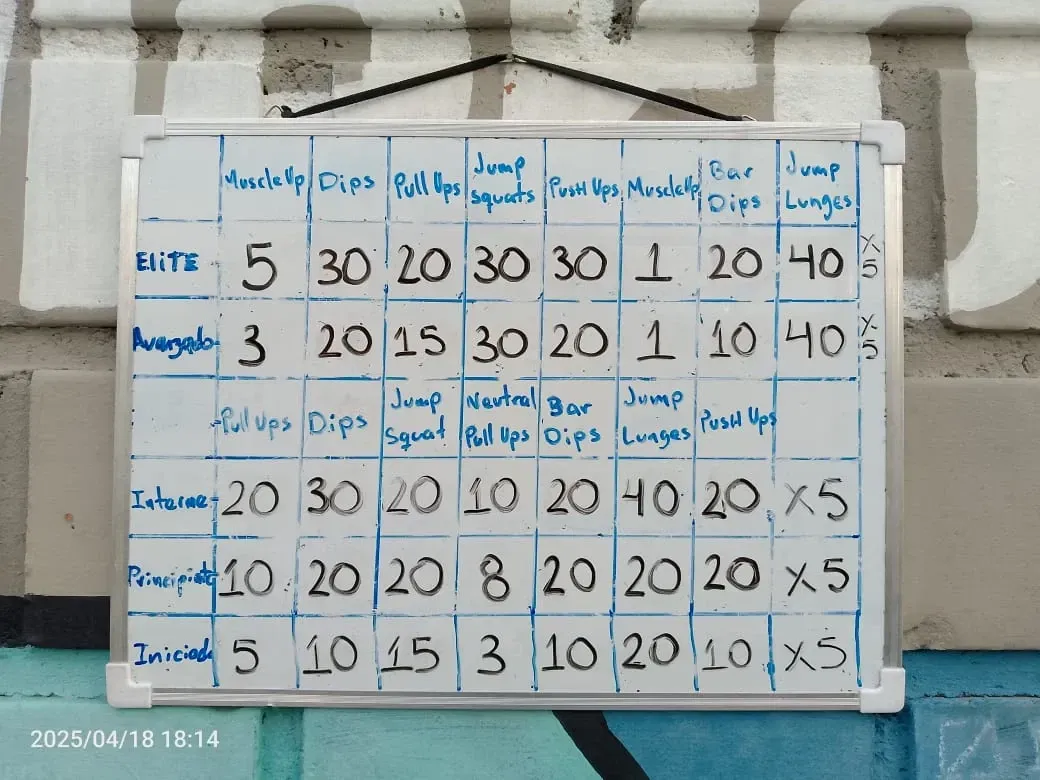 MuscleUp Dips Pull Ups Jump Squats PusH Ups MuscleUp Bar Dips Jump Lunges
EliTE 5 30 20 30 30 1 20 40 x5
Avanzado 3 20 15 30 20 1 10 40 x5
Pull Ups Dips Jump Squat Neutral Pull Ups Bar Dips Jump Lunges PusH Ups
Interme- 20 30 20 10 20 40 20 x5
Principiante 10 20 20 8 20 20 20 x5
Iniciado 5 10 15 3 10 20 10 x5
2025/04/18 18:14